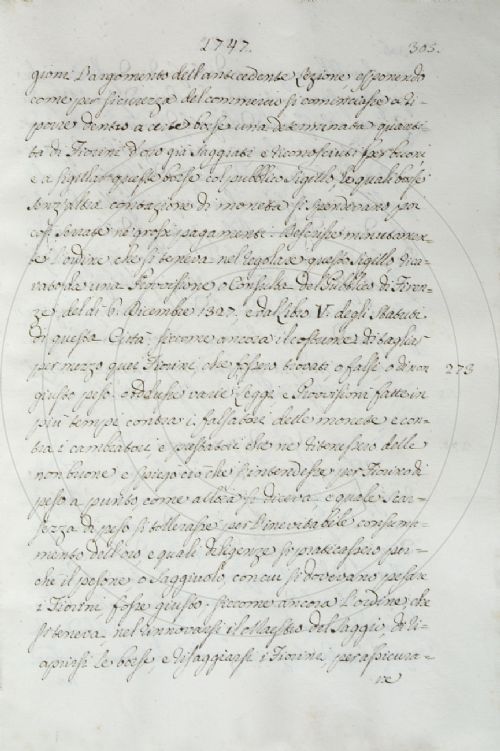 1747.
305.
gioni l'argomento dell'antecedente Lezione, esponendo
come per sicurezza del commercio si cominciasse a ri-
porre dentro a certe borse una determinata quanti-
tà di Fiorini d'oro già saggiati e riconosciuti per buoni
e a sigillar queste borse col pubblico Sigillo, le quali borse
senz'altra contazione di moneta si spendevano po
così serrate ne' grossi pagamenti. Descrisse minutamen-
te l'ordine che si teneva nel regolar questo Sigillo rica-
vatolo da una Provvisione o Consulta del Pubblico di Firen-
ze del dì 6. Dicembre 1327. e dal Libro V. degli Statuti
di questa Città: siccome ancora il costume di tagliar
per mezzo quei Fiorini, che fossero trovati, o falsi, o di non
273
giusto peso. Addusse varie Leggi e Provvisioni fatte in
più tempi contra i falsatori delle monete e con-
tra i cambiatori, e prestatori che ne ritenessero delle
non buone e spiegò ciò che s'intendesse per Fiorino di
peso a punto come allora si diceva e quale scar-
sezza di peso si tollerasse per l'inevitabile consuma-
mento dell'oro e quali diligenze si praticassero per-
che il pesone o Saggiuolo, con cui si dovevano pesare
i Fiorini fosse giusto. siccome ancora l'ordine, che
si teneva nel rinnovarsi il Maestro del Saggio, di ri-
aprirsi le borse, e risaggiarsi i Fiorini per assicura-
re